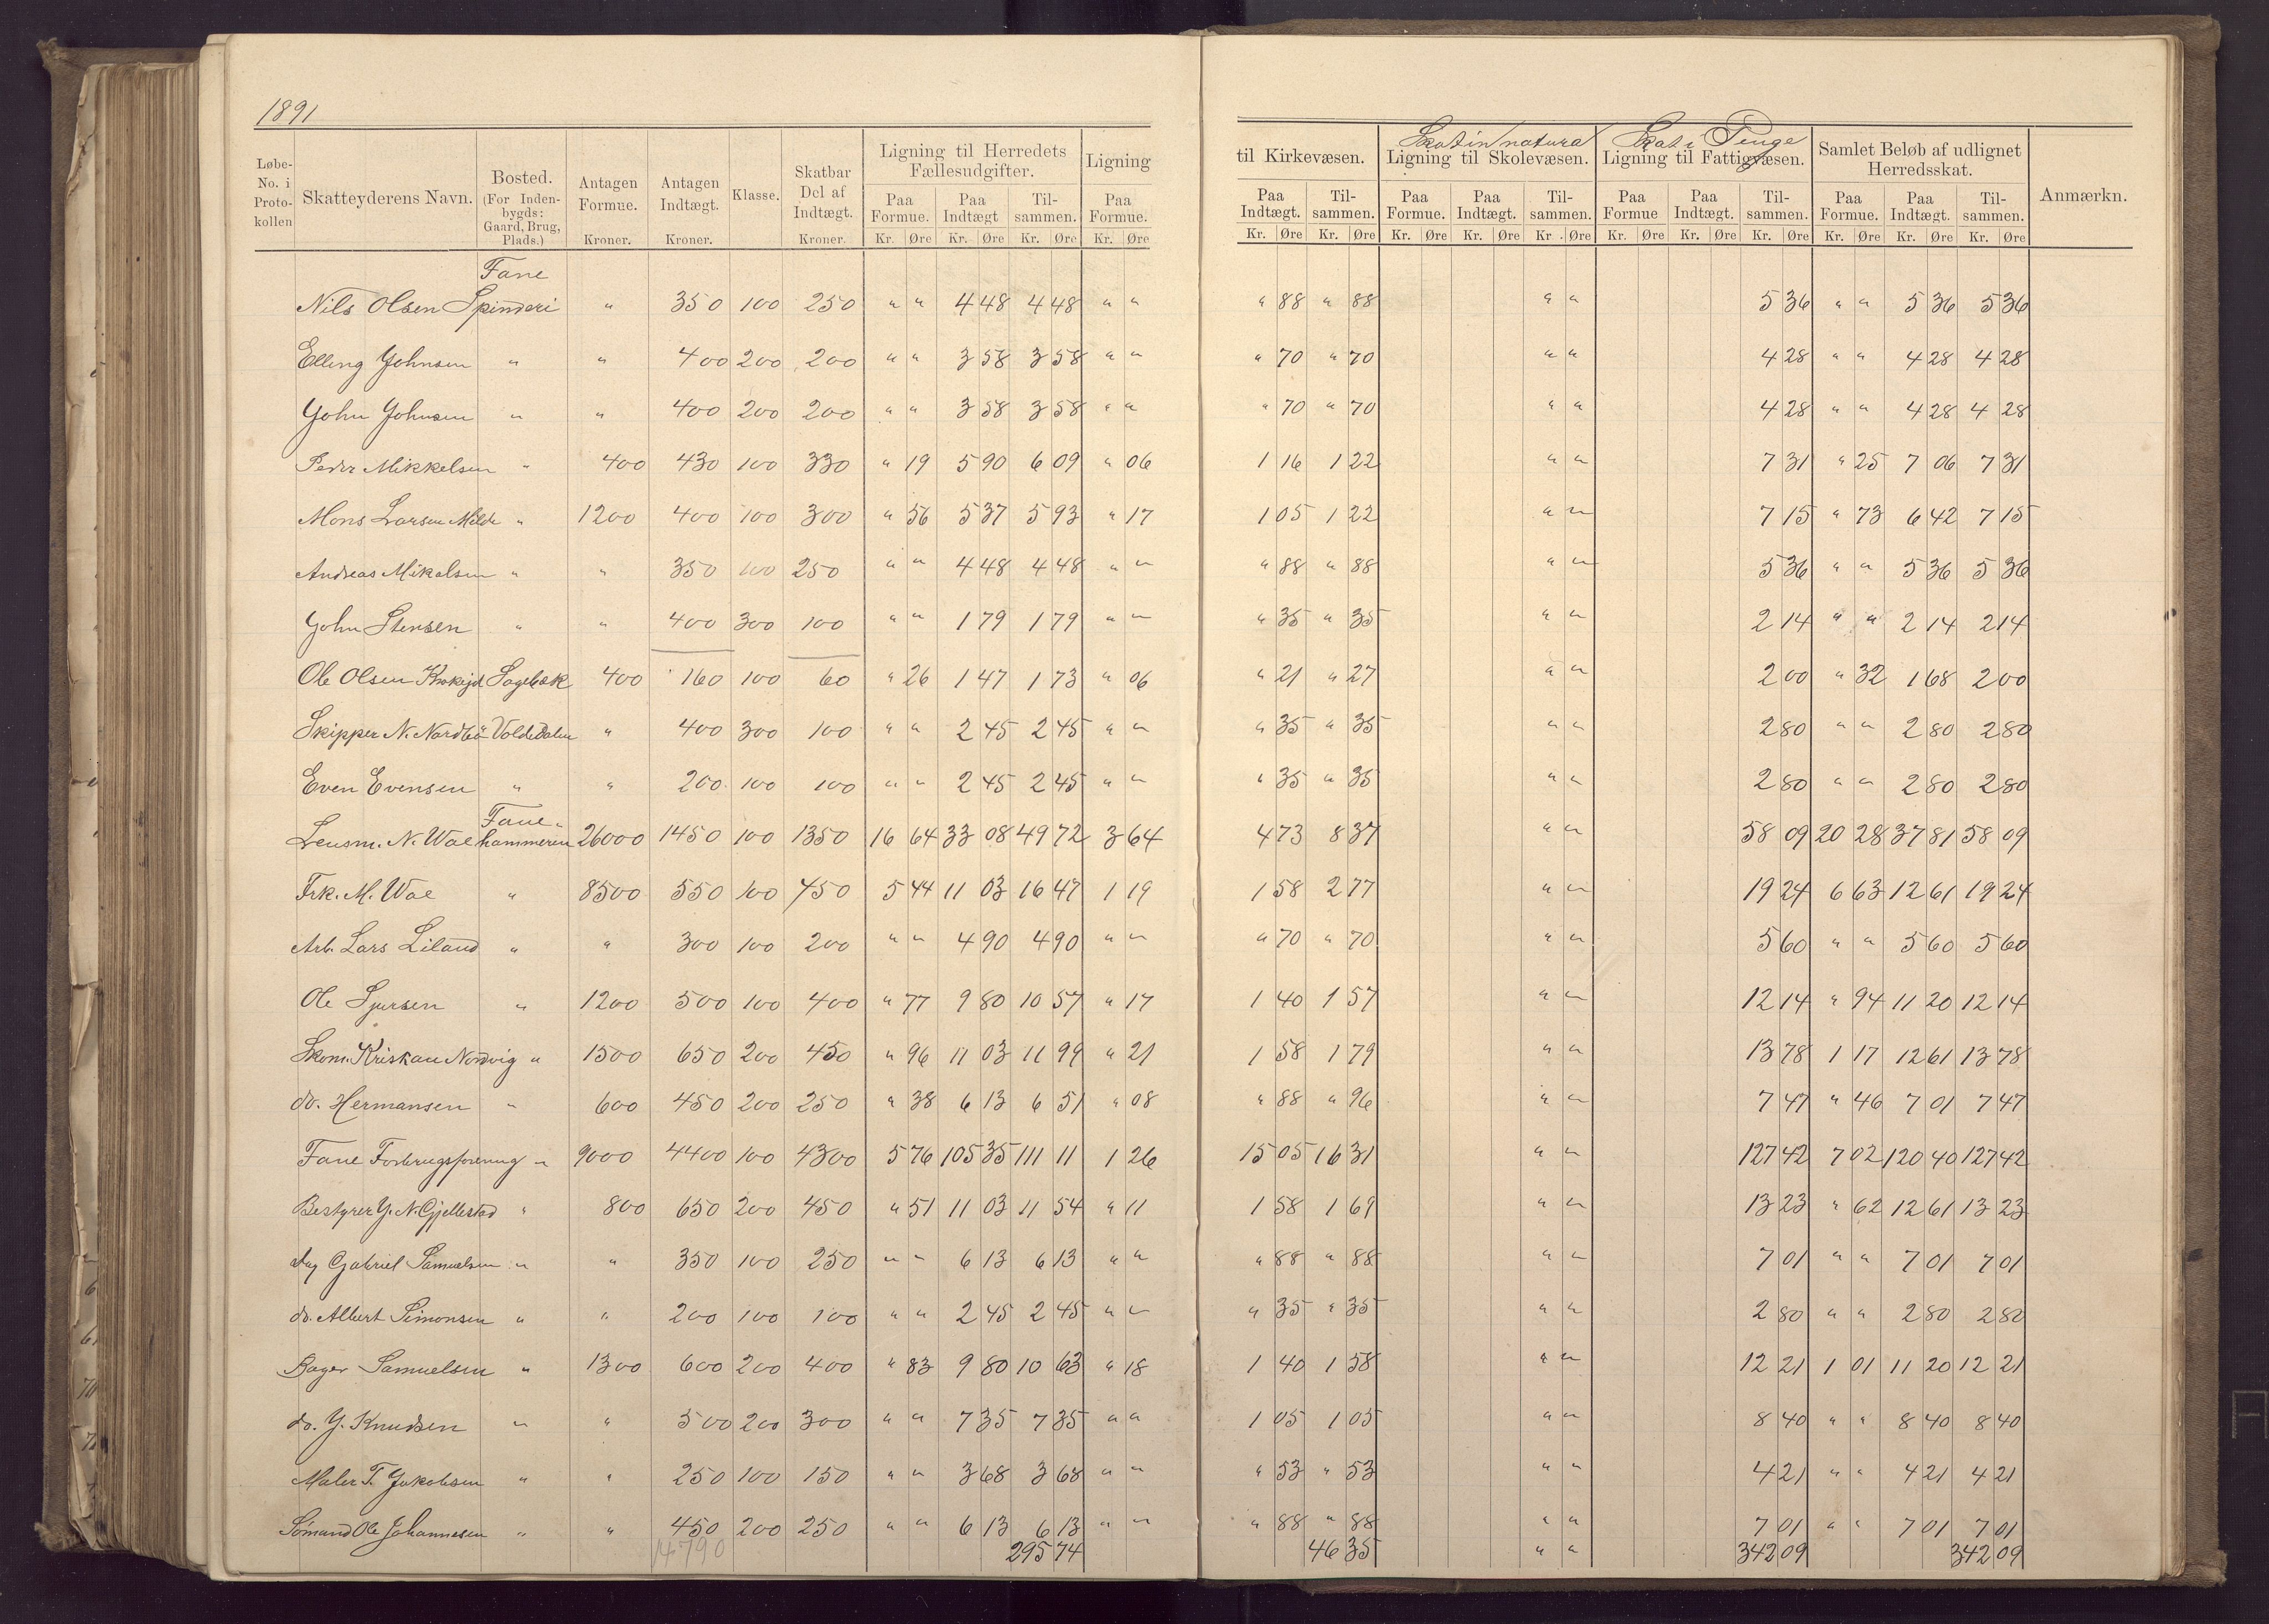 1891
Løbe-No. i Proto-kollen Skatteyderens Navn. Bosted. (For Inden-bygds: Gaard, Brug, Plads.) Antagen Formue. Kroner. Antagen Indtægt. Kroner. Klasse. Skatbar Del af Indtægt. Kroner. Ligning til Herredets Fællesudgifter. Paa Formue. Kr. Øre Paa Indtægt Kr. Øre Til-sammen. Kr. Øre Ligning Paa Formue. Kr. Øre
til Kirkevæsen. Paa Indtægt. Kr. Øre Til-sammen. Kr. Øre Skat in natura Ligning til Skolevæsen. Paa Formue. Kr. Øre Paa Indtægt. Kr. Øre Til-sammen. Kr. Øre Skat i Penge Ligning til Fattigvæsen. Paa Formue Kr. Øre Paa Indtægt. Kr. Øre Til-sammen. Kr. Øre Samlet Beløb af udlignet Herredsskat. Paa Formue. Kr. Øre Paa Indtægt. Kr. Øre Til-sammen. Kr. Øre Anmærkn.
Fane
Nils Olsen Spinderi " 350 100 250 " " 4 48 4 48 " " " 88 " 88 " " 5 36 " " 5 36 5 36
Elling Johnsen " " 400 200 200 " " 3 58 3 58 " " " 70 " 70 " " 4 28 " " 4 28 4 28
John Johnsen " " 400 200 200 " " 3 58 3 58 " " " 70 " 70 " " 4 28 " " 4 28 4 28
Peder Mikkelsen " 400 430 100 330 " 19 5 90 6 09 " 06 1 16 1 22 " " 7 31 " 25 7 06 7 31
Mons Larsen Milde " 1200 400 100 300 " 56 5 37 5 93 " 17 1 05 1 22 " " 7 15 " 73 6 42 7 15
Andreas Mikalsen " " 350 100 250 " " 4 48 4 48 " " " 88 " 88 " " 5 36 " " 5 36 5 36
John Stensen " " 400 300 100 " " 1 79 1 79 " " " 35 " 35 " " 2 14 " " 2 14 2 14
Ole Olsen Krokejd Sagebæk 400 160 100 60 " 26 1 47 1 73 " 06 " 21 " 27 " " 2 00 " 32 1 68 2 00
Skipper N. Nordbö Voldedalen " 400 300 100 " " 2 45 2 45 " " " 35 " 35 " " 2 80 " " 2 80 2 80
Even Evensen " " 200 100 100 " " 2 45 2 45 " " " 35 " 35 " " 2 80 " " 2 80 2 80
Fane-
Lensm. N. Wae hammeren 26000 1450 100 1350 16 64 33 08 49 72 3 64 4 73 8 37 " " 58 09 20 28 37 81 58 09
Frk. M. Wae " 8500 550 100 450 5 44 11 03 16 47 1 19 1 58 2 77 " " 19 24 6 63 12 61 19 24
Arb. Lars Liland " " 300 100 200 " " 4 90 4 90 " " " 70 " 70 " " 5 60 " " 5 60 5 60
Ole Sjursen " 1200 500 100 400 " 77 9 80 10 57 " 17 1 40 1 57 " " 12 14 " 94 11 20 12 14
Skom. Kriskan Nordvig " 1500 650 200 450 " 96 11 03 11 99 " 21 1 58 1 79 " " 13 78 1 17 12 61 13 78
do. Hermansen " 600 450 200 250 " 38 6 13 6 51 " 08 " 88 " 96 " " 7 47 " 46 7 01 7 47
Fane Forbrugsforening " 9000 4400 100 4300 5 76 105 35 111 11 1 26 15 05 16 31 " " 127 42 7 02 120 40 127 42
Bestyrer J. N. Gjellestad " 800 650 200 450 " 51 11 03 11 54 " 11 1 58 1 69 " " 13 23 " 62 12 61 13 23
Gabriel Samuelsen " " 350 100 250 " " 6 13 6 13 " " " 88 " 88 " " 7 01 " " 7 01 7 01
do. Albert Simonsen " " 200 100 100 " " 2 45 2 45 " " " 35 " 35 " " 2 80 " " 2 80 2 80
Bager Samuelsen " 1300 600 200 400 " 83 9 80 10 63 " 18 1 40 1 58 " " 12 21 1 01 11 20 12 21
do. J. Knudsen " " 500 200 300 " " 7 35 7 35 " " 1 05 1 05 " " 8 40 " " 8 40 8 40
Maler T. Jakobsen " " 250 100 150 " " 3 68 3 68 " " " 53 " 53 " " 4 21 " " 4 21 4 21
Sömand Ole Johannesen " " 450 200 250 " " 6 13 6 13 " " " 88 " 88 " " 7 01 " " 7 01 7 01
14790 295 74 46 35 " " 342 09 342 09